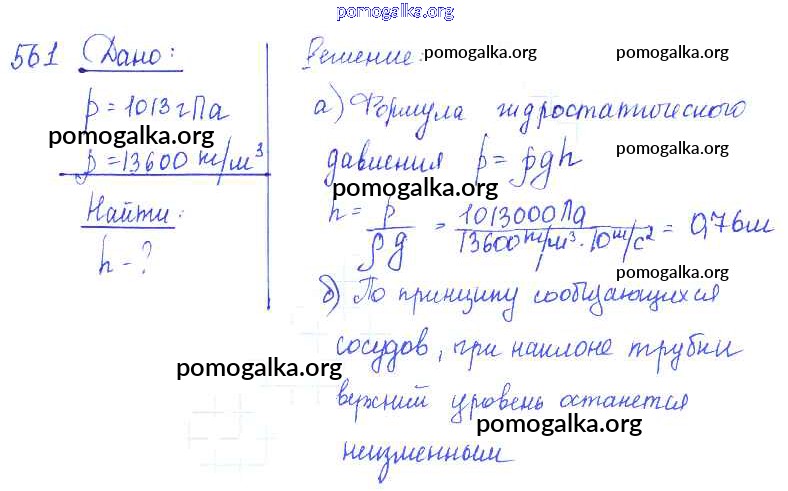 pomogalka.org
561 Дано:
p = 1013 гПа
pomogalka.org
ρ = 13600 кг/м³
Найти:
h - ?
Решение: pomogalka.org
а) Формула гидростатического
pomogalka.org
давления p = ρgh
pomogalka.org
h = p / ρg = 1013000 Па / 13600 кг/м³ · 10 м/с² = 0,76 м
pomogalka.org
б) По принципу сообщающихся
сосудов, при наклоне трубки
pomogalka.org
верхний уровень останется
pomogalka.org
неизменным